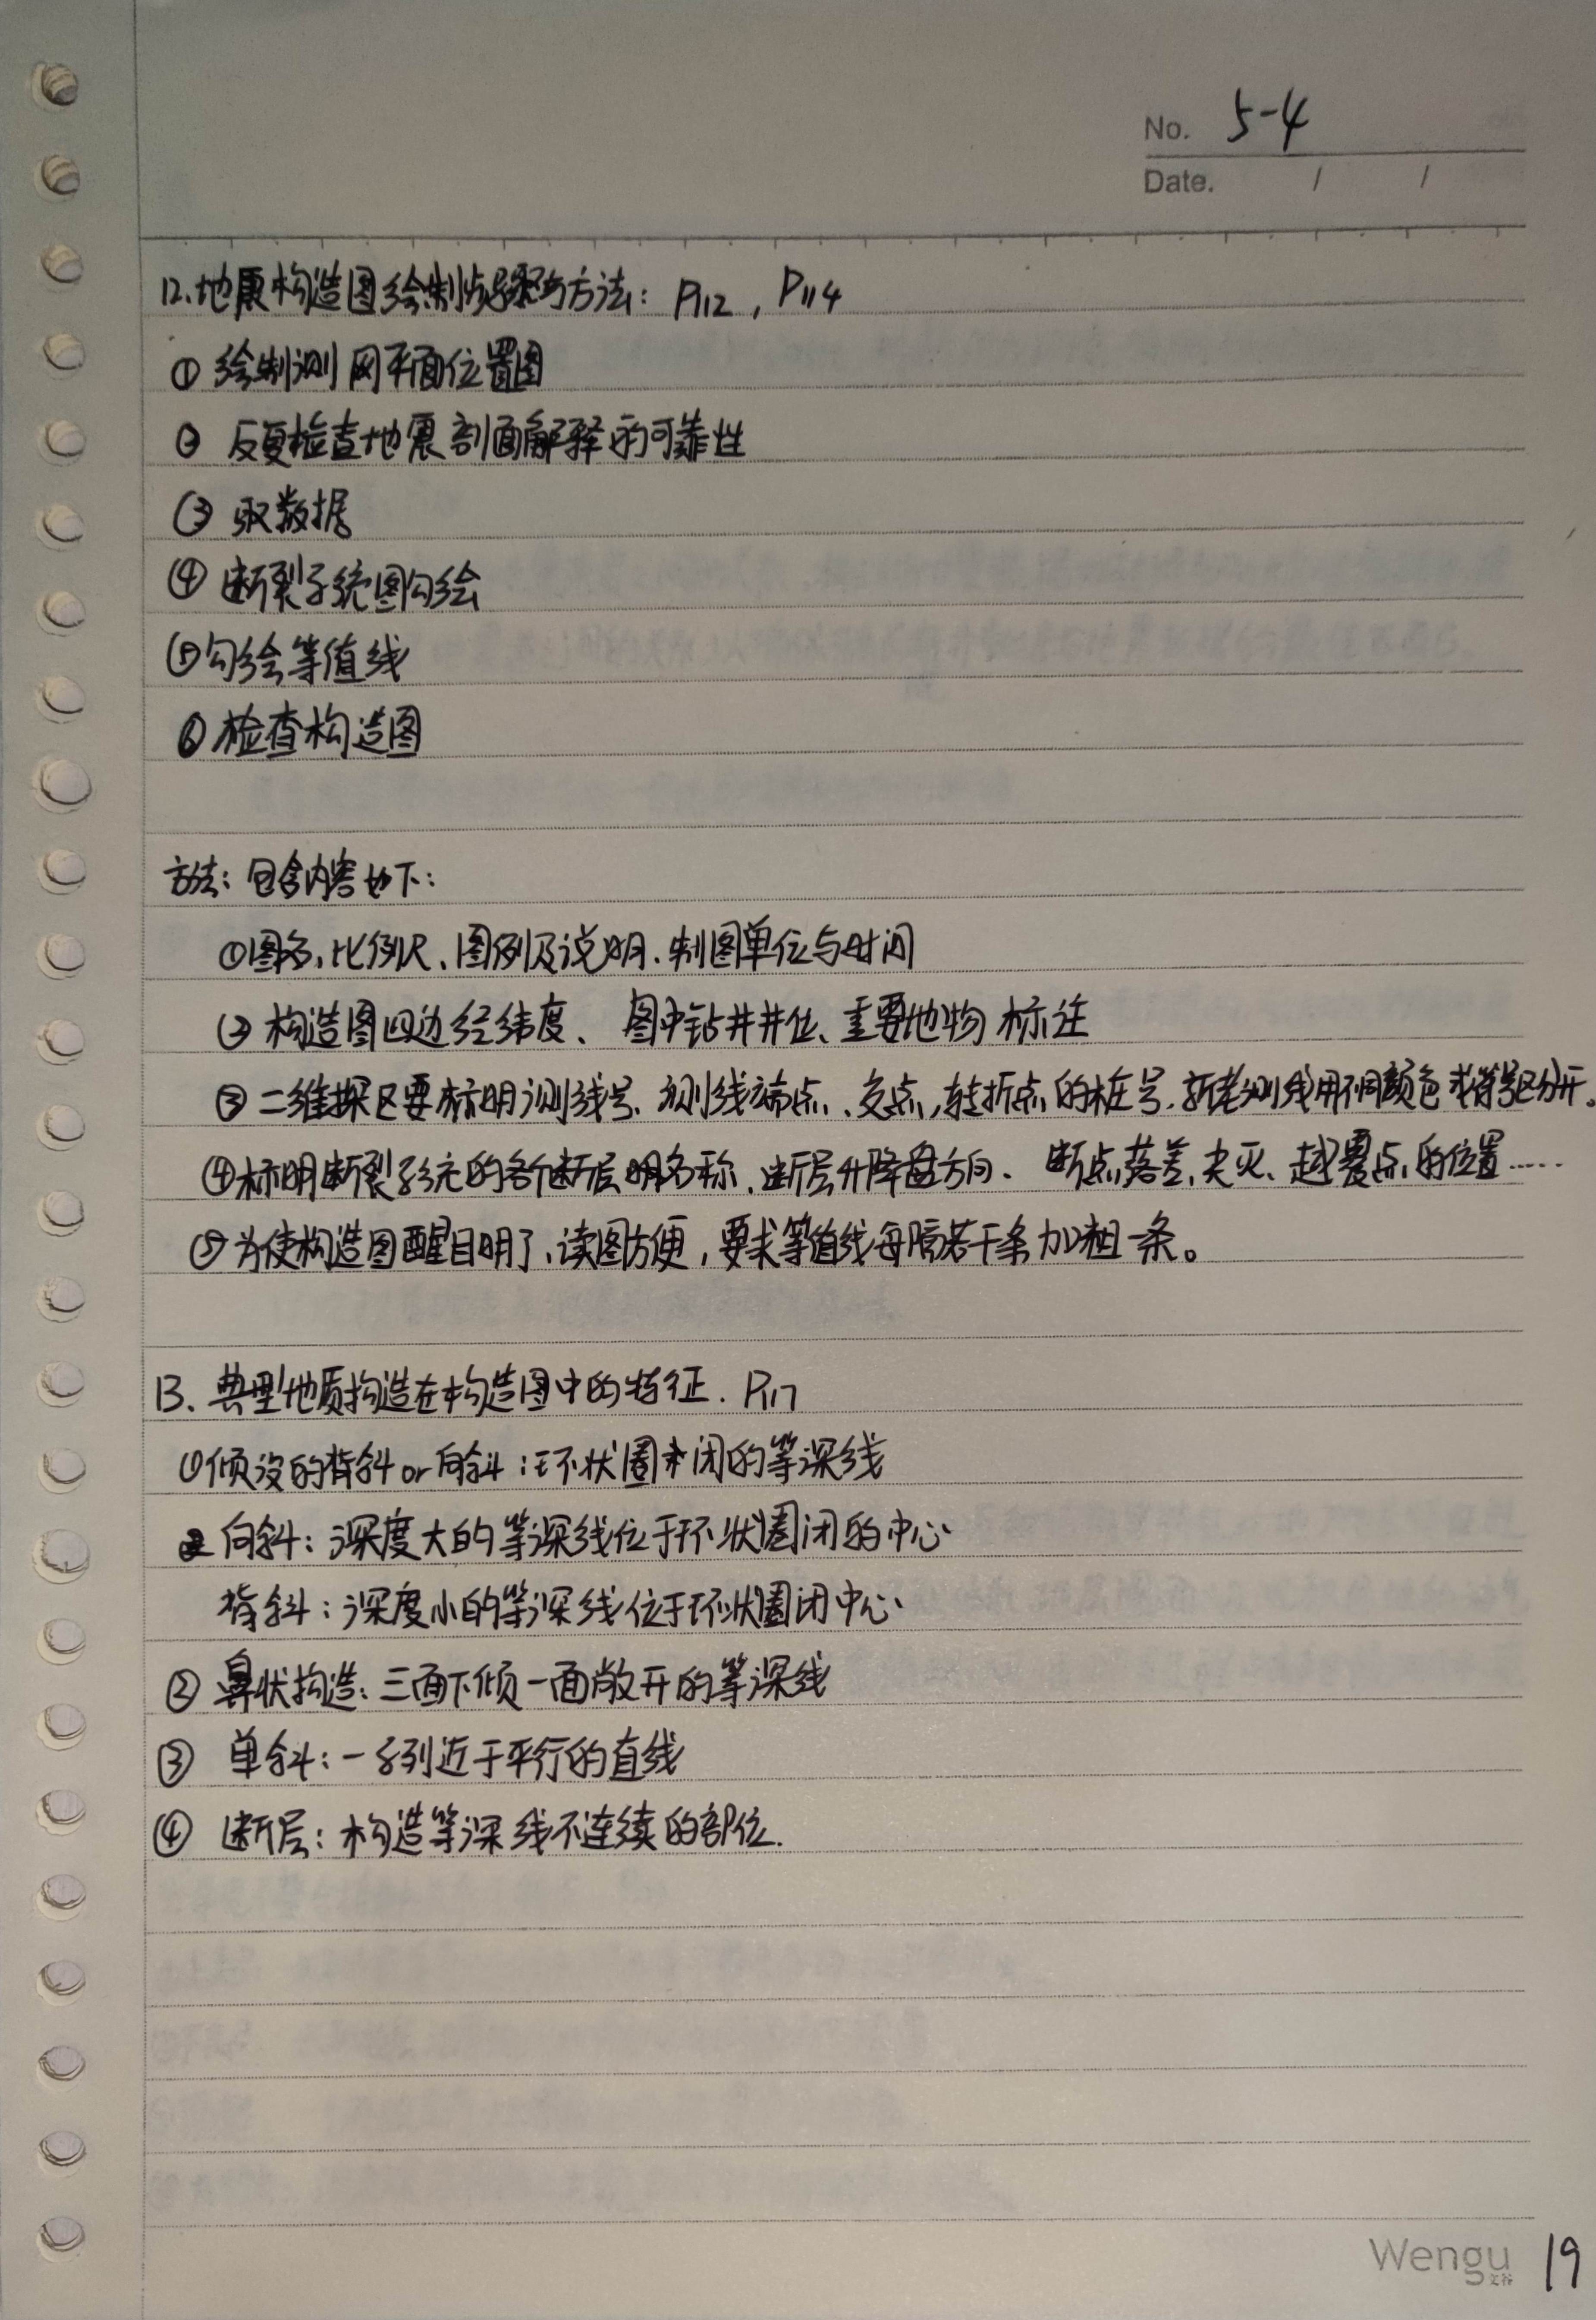 No. 5-4
Date. / /
12.地震构造图绘制步骤与方法: P112, P114
① 绘制测网平面位置图
② 反复检查地震剖面解释的可靠性
③ 取数据
④ 断裂系统图勾绘
⑤勾绘等值线
⑥检查构造图
方法: 包含内容如下:
①图名、比例尺、图例及说明、制图单位与时间
② 构造图四边经纬度、图中钻井井位、重要地物标注
③ 二维探区要标明测线号、测线端点、交点,转折点的桩号,新老测线用不同颜色或符号区分开。
④标明断裂系统的各个断层明名称、断层升降盘方向、断点落差、尖灭、超覆点的位置……
⑤为使构造图醒目明了、读图方便,要求等值线每隔若干条加粗一条。
13、典型地质构造在构造图中的特征. P117
①倾没的背斜or向斜:环状圈闭的等深线
向斜:深度大的等深线位于环状圈闭的中心
背斜:深度小的等深线位于环状圈闭中心
② 鼻状构造:三面下倾一面敞开的等深线
③ 单斜:一系列近于平行的直线
④ 断层:构造等深线不连续的部位.
Wengu 19
文谷